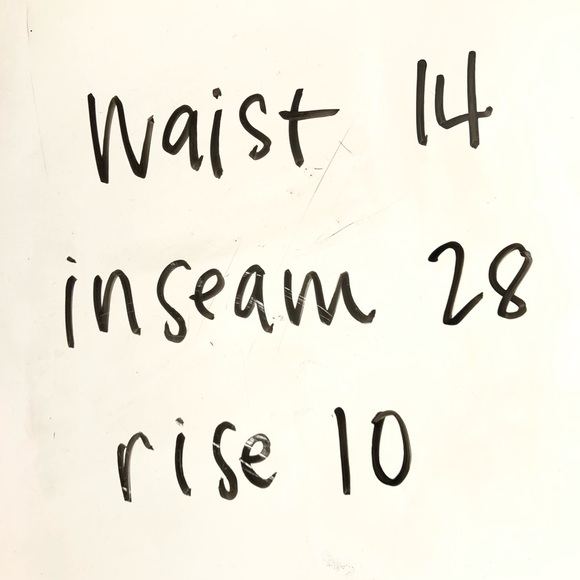 Waist 14
inseam 28
rise 10